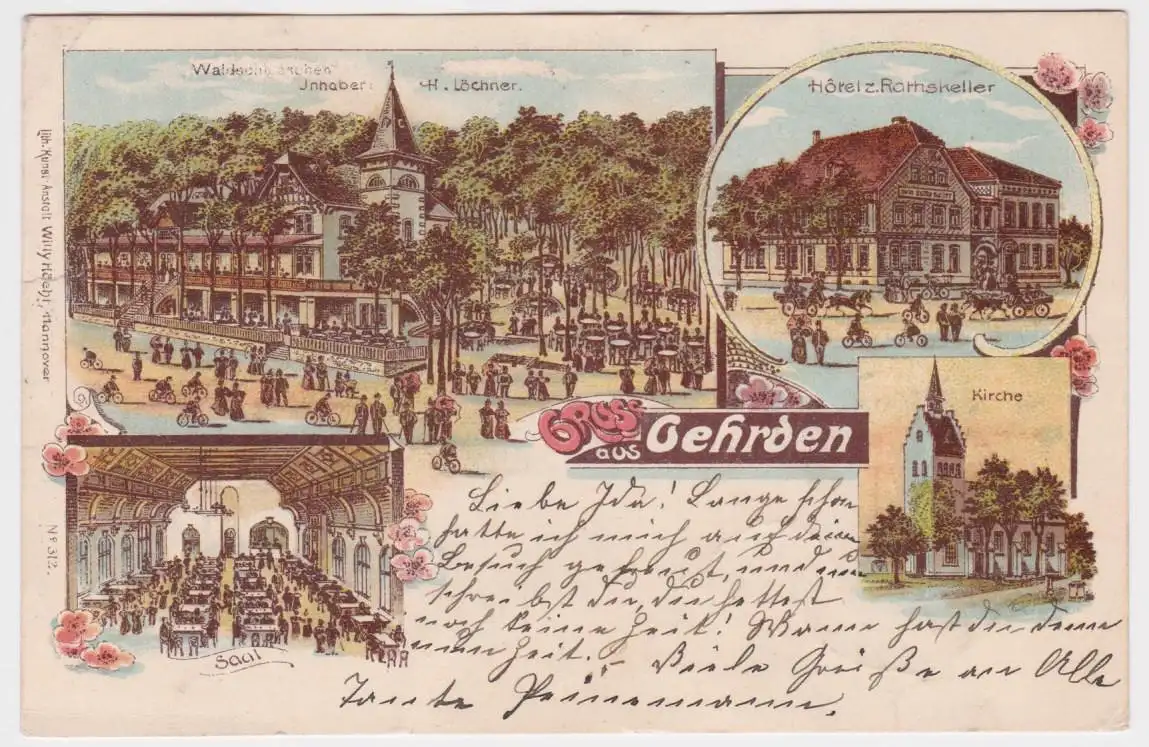 Waldschlösschen
Inhaber: H. Löchner.
Hôtel z. Rathskeller
Lith. Kunst-Anstalt Willy Hoehl, Hannover
Kirche
Gruss
aus Gehrden
Saal
No 312.
Liebe Ida! Lange schon
hatte ich mich auf deinen
Besuch gefreut, und nun
schreibst du, du hättest
noch keine Zeit! Wann hast du denn
nun Zeit. – Viele Grüße an Alle
Tante